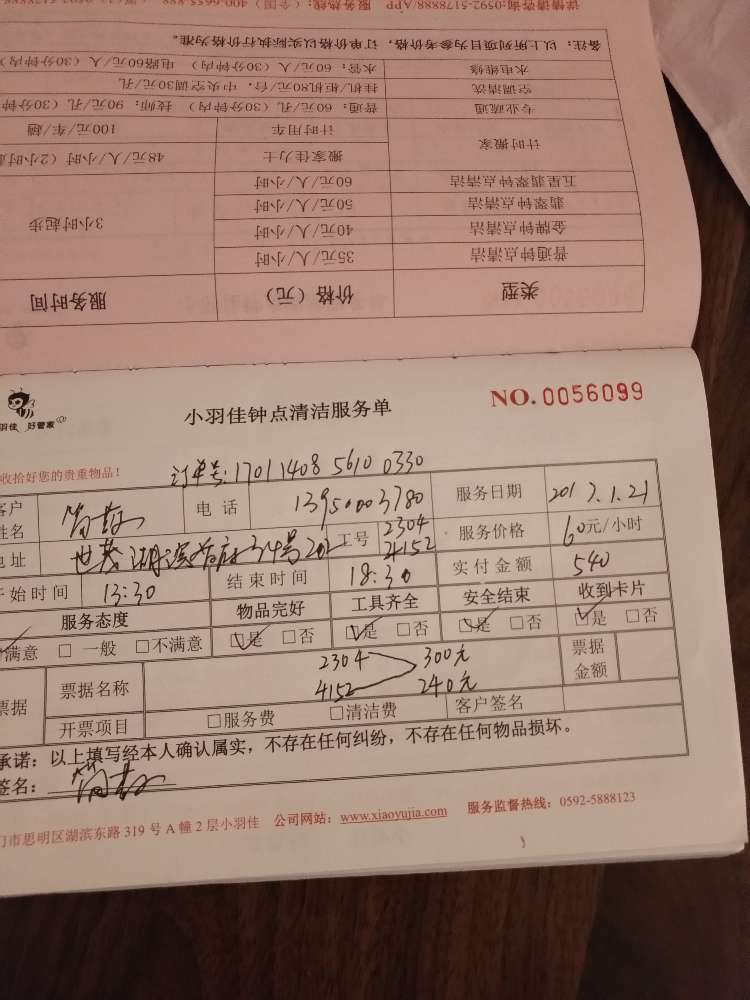 详情请咨询:0592-5178888/APP 服务热线:(全国)400-6655-888
备注:以上所列项目为参考价格,订单价格以实际执行价为准。
水电维修 水管:60元/人(30分钟内) 电路60元/人(30分钟内)
空调清洗 挂机/柜机80元/台,中央空调30元/孔
专业疏通 普通:60元/孔(30分钟内) 技师:90元/孔(30分钟
计时搬家 计时用车 100元/车/趟
搬家佳力士 48元/人/小时(2小时
五星翡翠钟点清洁 60元/人/小时
翡翠钟点清洁 50元/人/小时
金牌钟点清洁 40元/人/小时 3小时起步
普通钟点清洁 35元/人/小时
类型 价格(元) 服务时间
羽佳 好管家
小羽佳钟点清洁服务单 NO.0056099
收拾好您的贵重物品! 订单号:17011408 5610 0330
客户姓名 电话 13950003780 服务日期 2017.1.21
地址 世茂湖滨首府34号202 工号 2304 4152 服务价格 60元/小时
开始时间 13:30 结束时间 18:30 实付金额 540
服务态度 物品完好 工具齐全 安全结束 收到卡片
满意 □ 一般 □不满意 ☑是 □否 ☑是 □否 ☑是 □否 ☑是 □否
票据 票据名称 2304 300元 票据金额
4152 240元
开票项目 □服务费 □清洁费 客户签名
承诺:以上填写经本人确认属实,不存在任何纠纷,不存在任何物品损坏。
签名:
门市思明区湖滨东路 319 号 A 幢 2 层小羽佳 公司网站:www.xiaoyujia.com 服务监督热线:0592-5888123